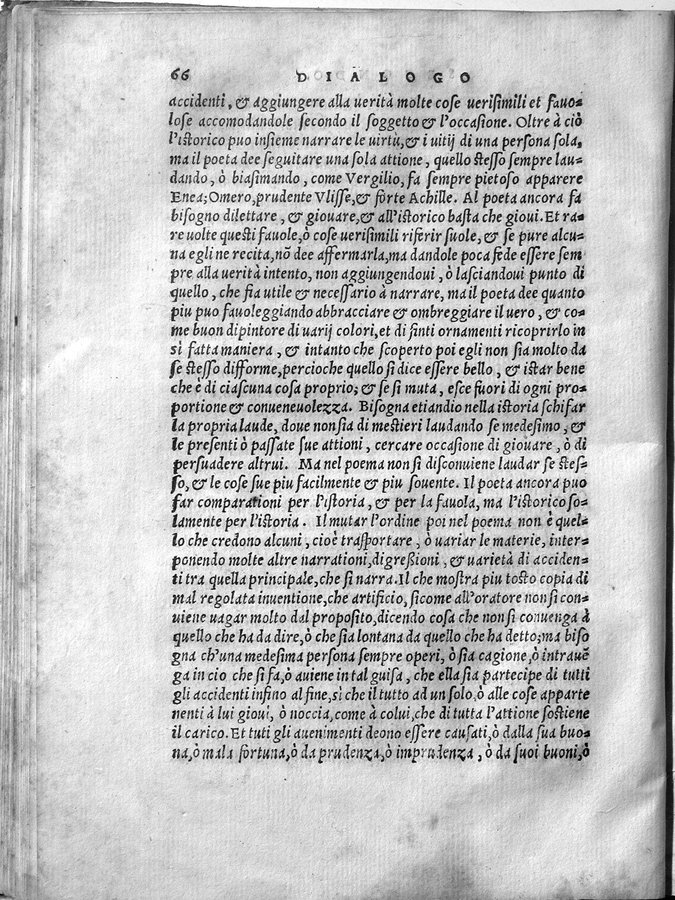 66 DIALOGO
accidenti, & aggiungere alla uerità molte cose uerisimili et fauo=
lose accomodandole secondo il soggetto & l'occasione. Oltre à ciò
l'istorico puo insieme narrare le uirtù, & i uitij di una persona sola,
ma il poeta dee seguitare una sola attione, quello stesso sempre lau=
dando, ò biasimando, come Vergilio, fa sempre pietoso apparere
Enea; Omero, prudente Vlisse, & forte Achille. Al poeta ancora fa
bisogno dilettare, & giouare, & all'istorico basta che gioui. Et ra=
re uolte questi fauole, ò cose uerisimili riferir suole, & se pure alcu=
na egli ne recita, nõ dee affermarla, ma dandole poca fede essere sem
pre alla uerità intento, non aggiungendoui, ò lasciandoui punto di
quello, che sia utile & necessario à narrare, ma il poeta dee quanto
piu puo fauoleggiando abbracciare & ombreggiare il uero, & co=
me buon dipintore di uarij colori, et di finti ornamenti ricoprirlo in
sì fatta maniera, & intanto che scoperto poi egli non sia molto da
se stesso difforme, percioche quello si dice essere bello, & istar bene
che è di ciascuna cosa proprio; & se si muta, esce fuori di ogni pro=
portione & conueneuolezza. Bisogna etiandio nella istoria schifar
la propria laude, doue non sia di mestieri laudando se medesimo, &
le presenti ò passate sue attioni, cercare occasione di giouare, ò di
persuadere altrui. Ma nel poema non si disconuiene laudar se stes=
so, & le cose sue piu facilmente & piu souente. Il poeta ancora puo
far comparationi per l'istoria, & per la fauola, ma l'istorico so=
lamente per l'istoria. Il mutar l'ordine poi nel poema non è quel=
lo che credono alcuni, cioè trasportare, ò uariar le materie, inter=
ponendo molte altre narrationi, digressioni, & uarietà di acciden=
ti tra quella principale, che si narra. Il che mostra piu tosto copia di
mal regolata inuentione, che artificio, sicome all'oratore non si con=
uiene uagar molto dal proposito, dicendo cosa che non si conuenga à
quello che ha da dire, ò che sia lontana da quello che ha detto; ma biso
gna ch'una medesima persona sempre operi, ò sia cagione, ò intrauẽ
ga in cio che si fa, ò auiene in tal guisa, che ella sia partecipe di tutti
gli accidenti infino al fine, sì che il tutto ad un solo, ò alle cose apparte
nenti à lui gioui, ò noccia, come à colui, che di tutta l'attione sostiene
il carico. Et tuti gli auenimenti deono essere causati, ò dalla sua buo=
na, ò mala fortuna, ò da prudenza, ò imprudenza, ò da suoi buoni, ò